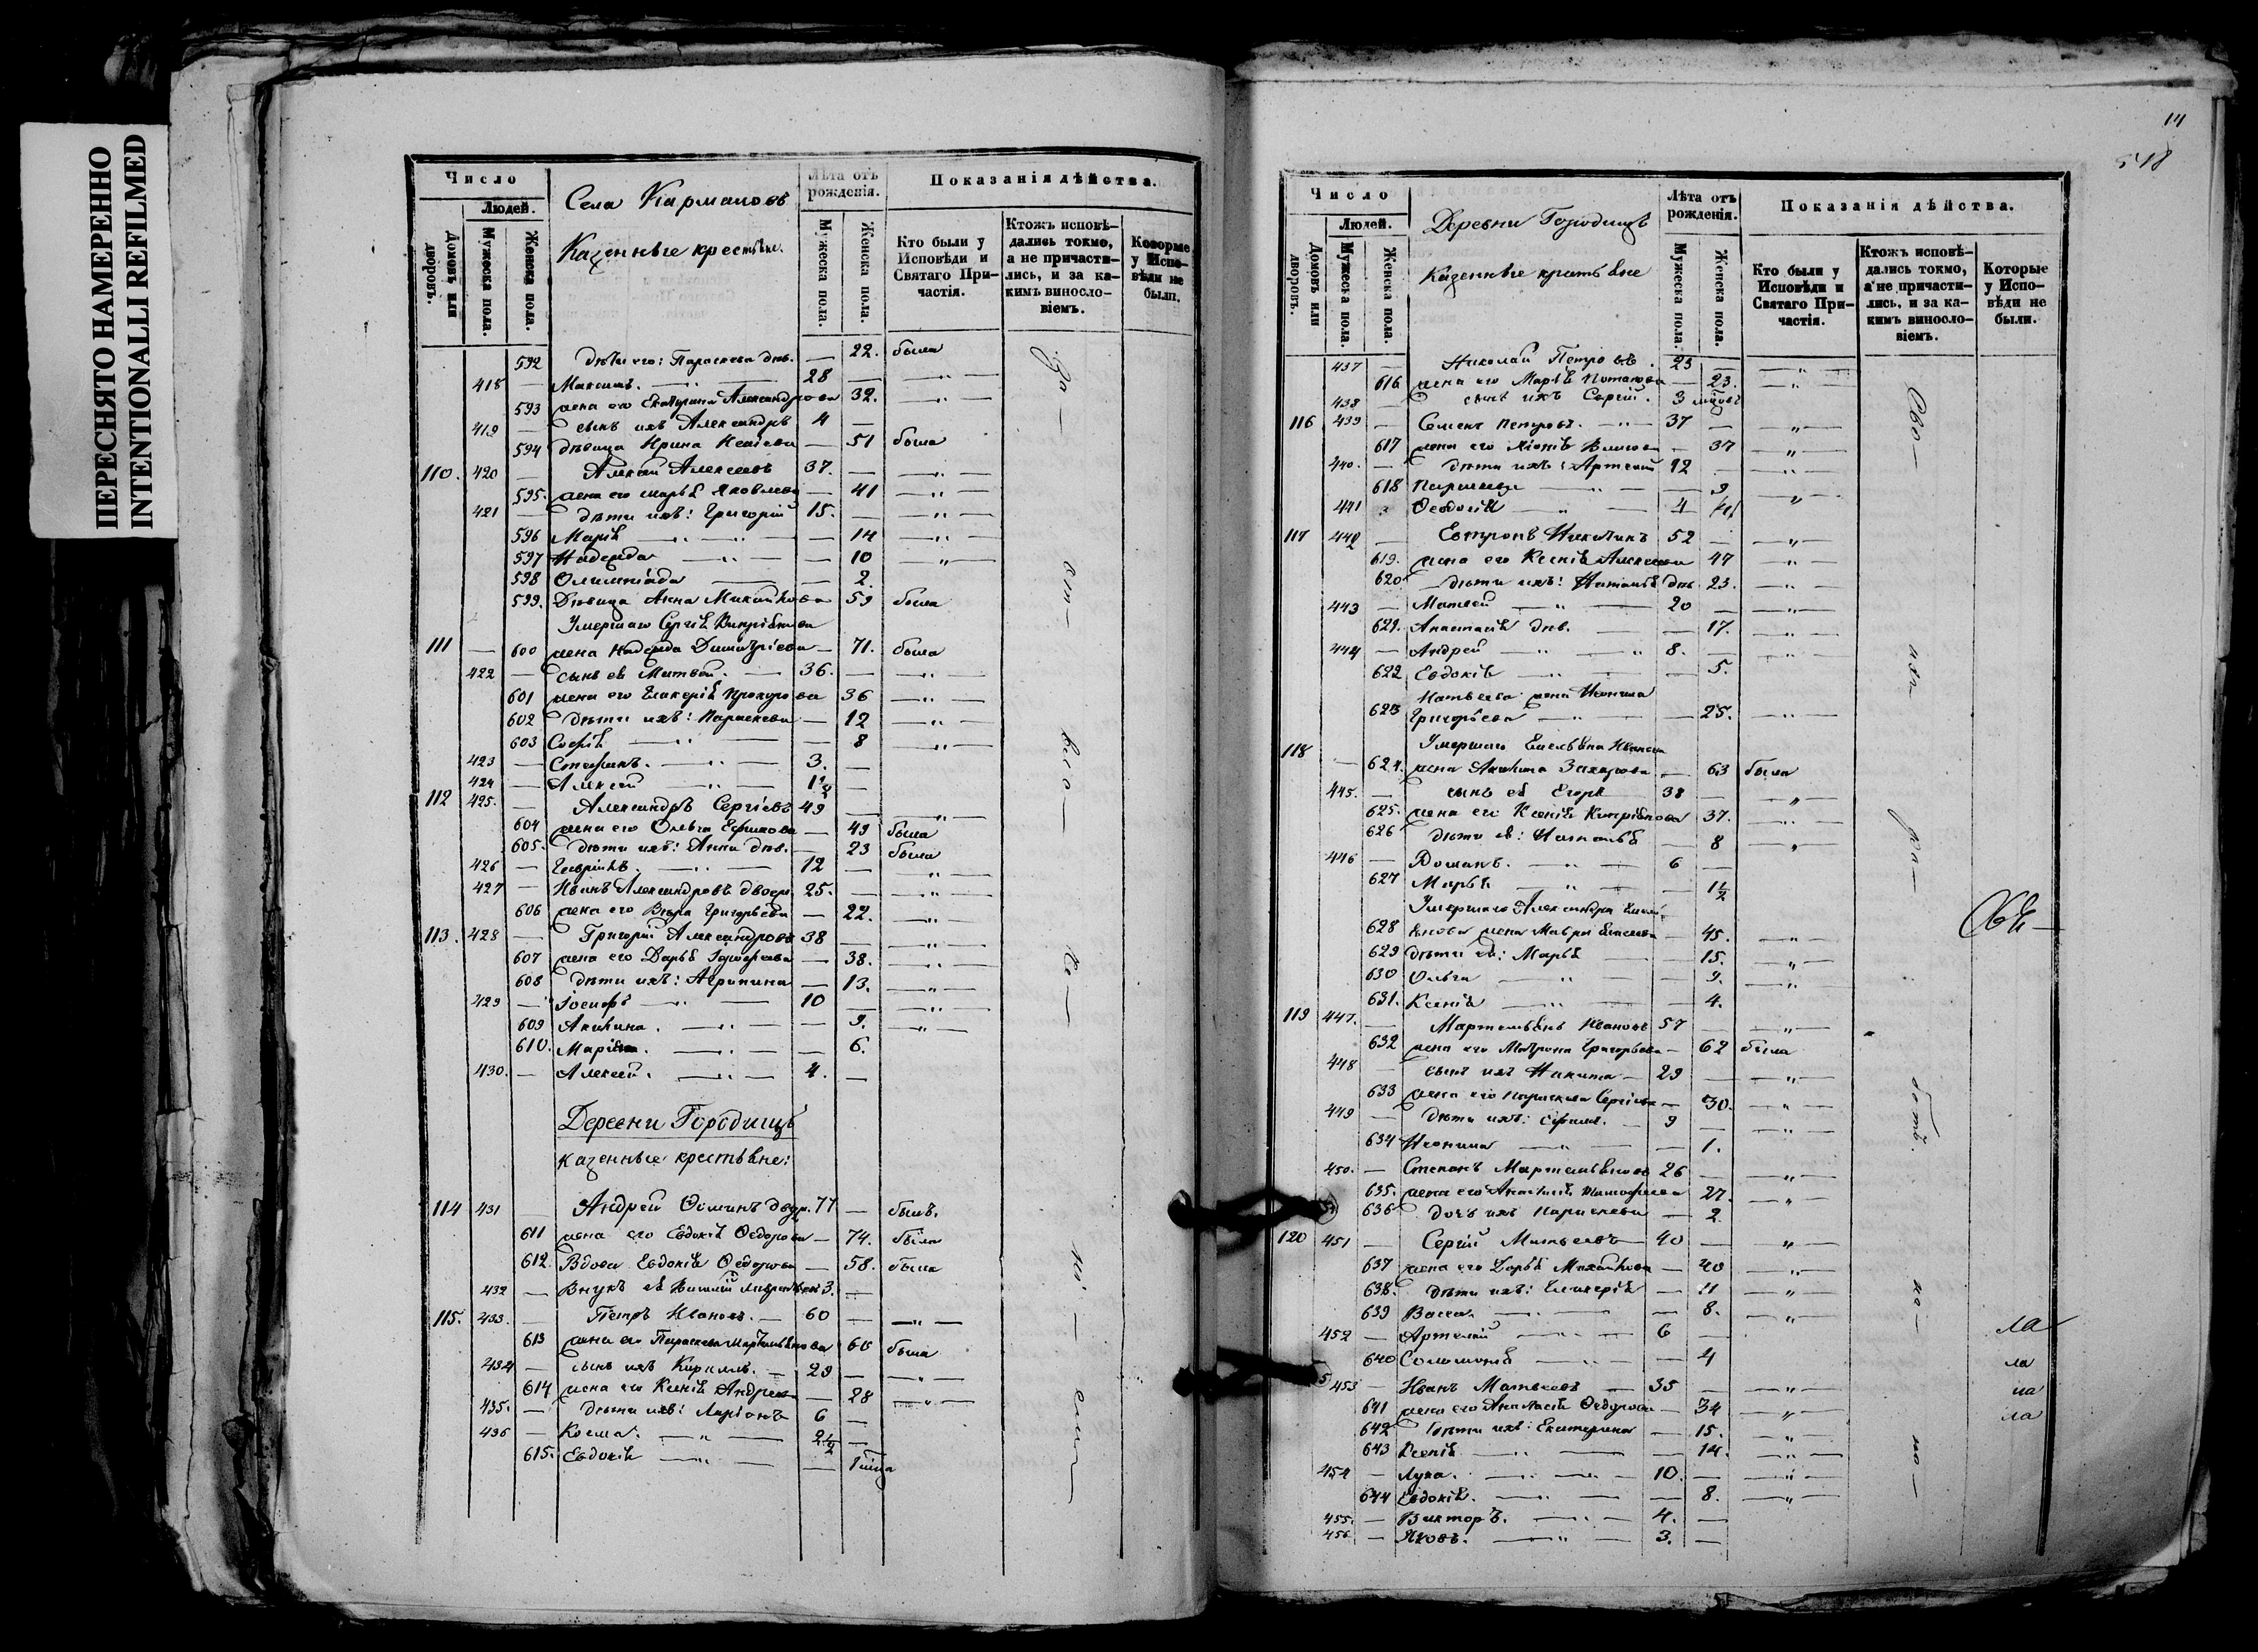 ПЕРЕСНЯТО НАМЕРЕННО
INTENTIONALLI REFILMED
Число
Людей.
Домовъ или дворовъ.
Мужеска пола.
Женска пола.
Села Кармановъ
Казенные крестьяне.
Лѣта отъ рожденія.
Мужеска пола.
Женска пола.
Показанія дѣйства.
Кто были у Исповѣди и Святаго Причастія.
Ктожъ исповѣдались токмо, а не причастились, и за какимъ винословіемъ.
Которые у Исповѣди не были.
592 дѣти его: Параскева дѣв. — 22. была
418 — Максимъ. — 28 —
593 жена его Екатерина Александрова 32.
419 — сынъ ихъ Александръ 4 —
594 дѣвица Ирина — 51 была
110. 420 — Алексѣй Алексеевъ 37. —
595. жена его Марья Яковлева — 41
421 — дѣти ихъ: Григорій 15. —
596 Марія — 14
597 Надежда — 10
598 Олимпіада — 2.
599. Дѣвица Анна Михайлова 59 была
Умершаго Сергія
111 — 600 жена Надежда Димитріева — 71. была
422 — сынъ ея Матвей. 36. —
601 жена его Гликерія 36
602 дѣти ихъ: Параскева — 12
603 Софія — 8
423 — Стефанъ. 3. —
424 — Алексей 1½ —
112 425. — Александръ Сергіевъ 49 —
604 жена его Ольга Ефимова — 49 была
605. дѣти ихъ: Анна дѣв. — 23 была
426 — Гавріилъ. 12 —
427 — Иванъ Александровъ 25. —
606 жена его Вѣра Григорьева — 22.
113. 428 — Григорій Александровъ 38 —
607 жена его Дарья — 38.
608 дѣти ихъ: Агрипина — 13.
429 — Іосифъ 10 —
609 Акилина. — 9.
610. Марія. — 6.
430. — Алексей. 4. —
Деревни Городищъ
казенные крестьяне:
114 431 — Андрей 77 — былъ.
611 жена его Евдокія Федорова — 74. была
612. Вдова Евдокія Федорова — 58. была
432 — Внукъ ея 3. —
115. 433. — Петръ Ивановъ. 60 —
613 жена его Параскева 60 была
434 — сынъ ихъ Кириллъ. 29 —
614 жена его Ксенія Андреева — 28
435. — дѣти ихъ: Ларіонъ 6 —
436 — Косма. 2½ —
615. Евдокія —
14
548
Число
Людей.
Домовъ или дворовъ.
Мужеска пола.
Женска пола.
Деревни Городищъ
Казенные крестьяне
Лѣта отъ рожденія.
Мужеска пола.
Женска пола.
Показанія дѣйства.
Кто были у Исповѣди и Святаго Причастія.
Ктожъ исповѣдались токмо, а не причастились, и за какимъ винословіемъ.
Которые у Исповѣди не были.
437 — Николай Петровъ. 23 —
616 жена его Марія Потапова — 23.
438 — сынъ ихъ Сергій. 3
116 439 — Семенъ Петровъ. 37 —
617 жена его — 37
440. — дѣти ихъ: Артемій 12 —
618 Параскева — 9
441 Феодосій 4
117 442 — Евтропъ Никитинъ 52 —
619. жена его Ксенія Алексеева 47
620 дѣти ихъ: Наталья дѣв. 23.
443 — Матвей 20 —
621. Анастасія дѣв. — 17.
444 — Андрей 8. —
622 Евдокія — 5.
Матвеева жена Неонила
623 Григорьева — 25.
118 Умершаго Емельяна Иванова
— 624. жена Акилина Захарова — 63 была
445. — сынъ ея Егоръ 38 —
625. жена его Ксенія 37.
626 дѣти ея: Наталья — 8
446 — Романъ. 6 —
627 Марья — 1½
Умершаго Александра
628 жена Мавра — 45.
629 дѣти ея: Марья — 15.
630 Ольга — 9.
631. Ксенія — 4.
119 447. — Мартемьянъ Ивановъ 57 —
632 жена его Матрона Григорьева — 62 была
448 — сынъ ихъ Никита 29 —
633 жена его Параскева Сергіева — 30.
449 — дѣти ихъ: Ефимъ. 9 —
634 Неонила — 1.
450. — Степанъ Мартемьяновъ 26 —
635. жена его Анастасія Тимофеева 27.
636 дочь ихъ Параскева — 2.
120 451 — Сергій Матвеевъ 40 —
637 жена его Дарья Михайлова — 40
638. дѣти ихъ: Гликерія — 11
639 Васса. — 8.
452 — Артемій 6 —
640 Соломонія — 4
453 — Иванъ Матвеевъ 35 —
641 жена его Анастасія Федорова — 34
642 дѣти ихъ: Екатерина — 15.
643 Ксенія — 14.
454 — Лука. 10. —
644 Евдокія. — 8.
455. — Викторъ. 4. —
456 — Яковъ. 3. —